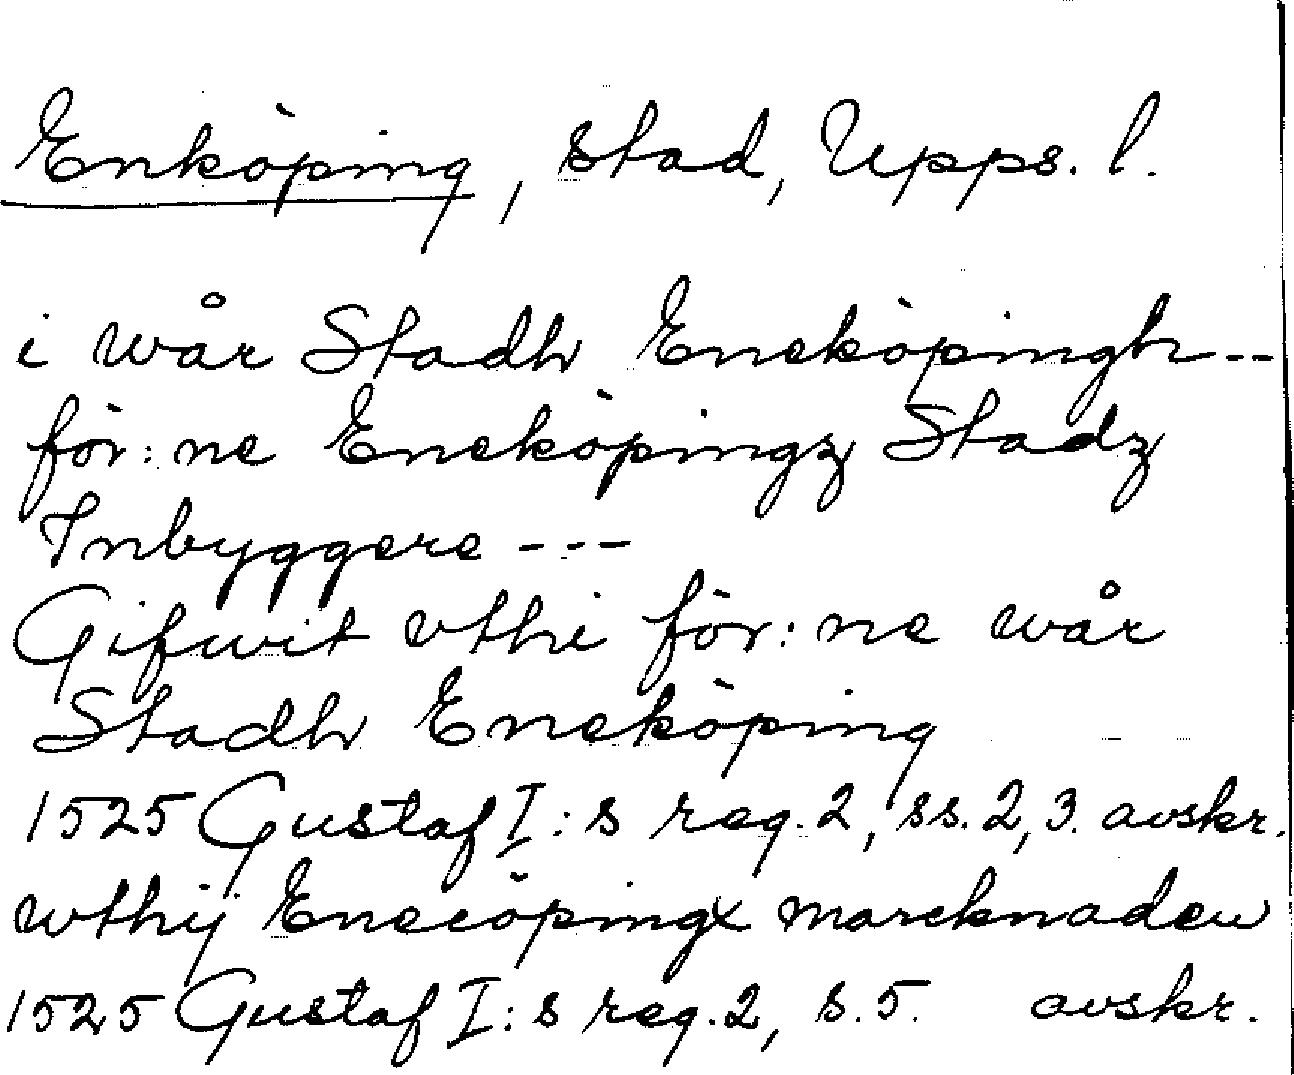 Enköping, stad, Upps. l.
i wår Stadh Eneköpingh--
för:ne Eneköpingz Stadz
Inbyggere ---
Gifwit vthi för:ne wår
Stadh Eneköping
1525 Gustaf I:s reg. 2, ss. 2, 3. avskr.
wthij Enecöpingx marcknaden
1525 Gustaf I:s reg. 2, s. 5. avskr.